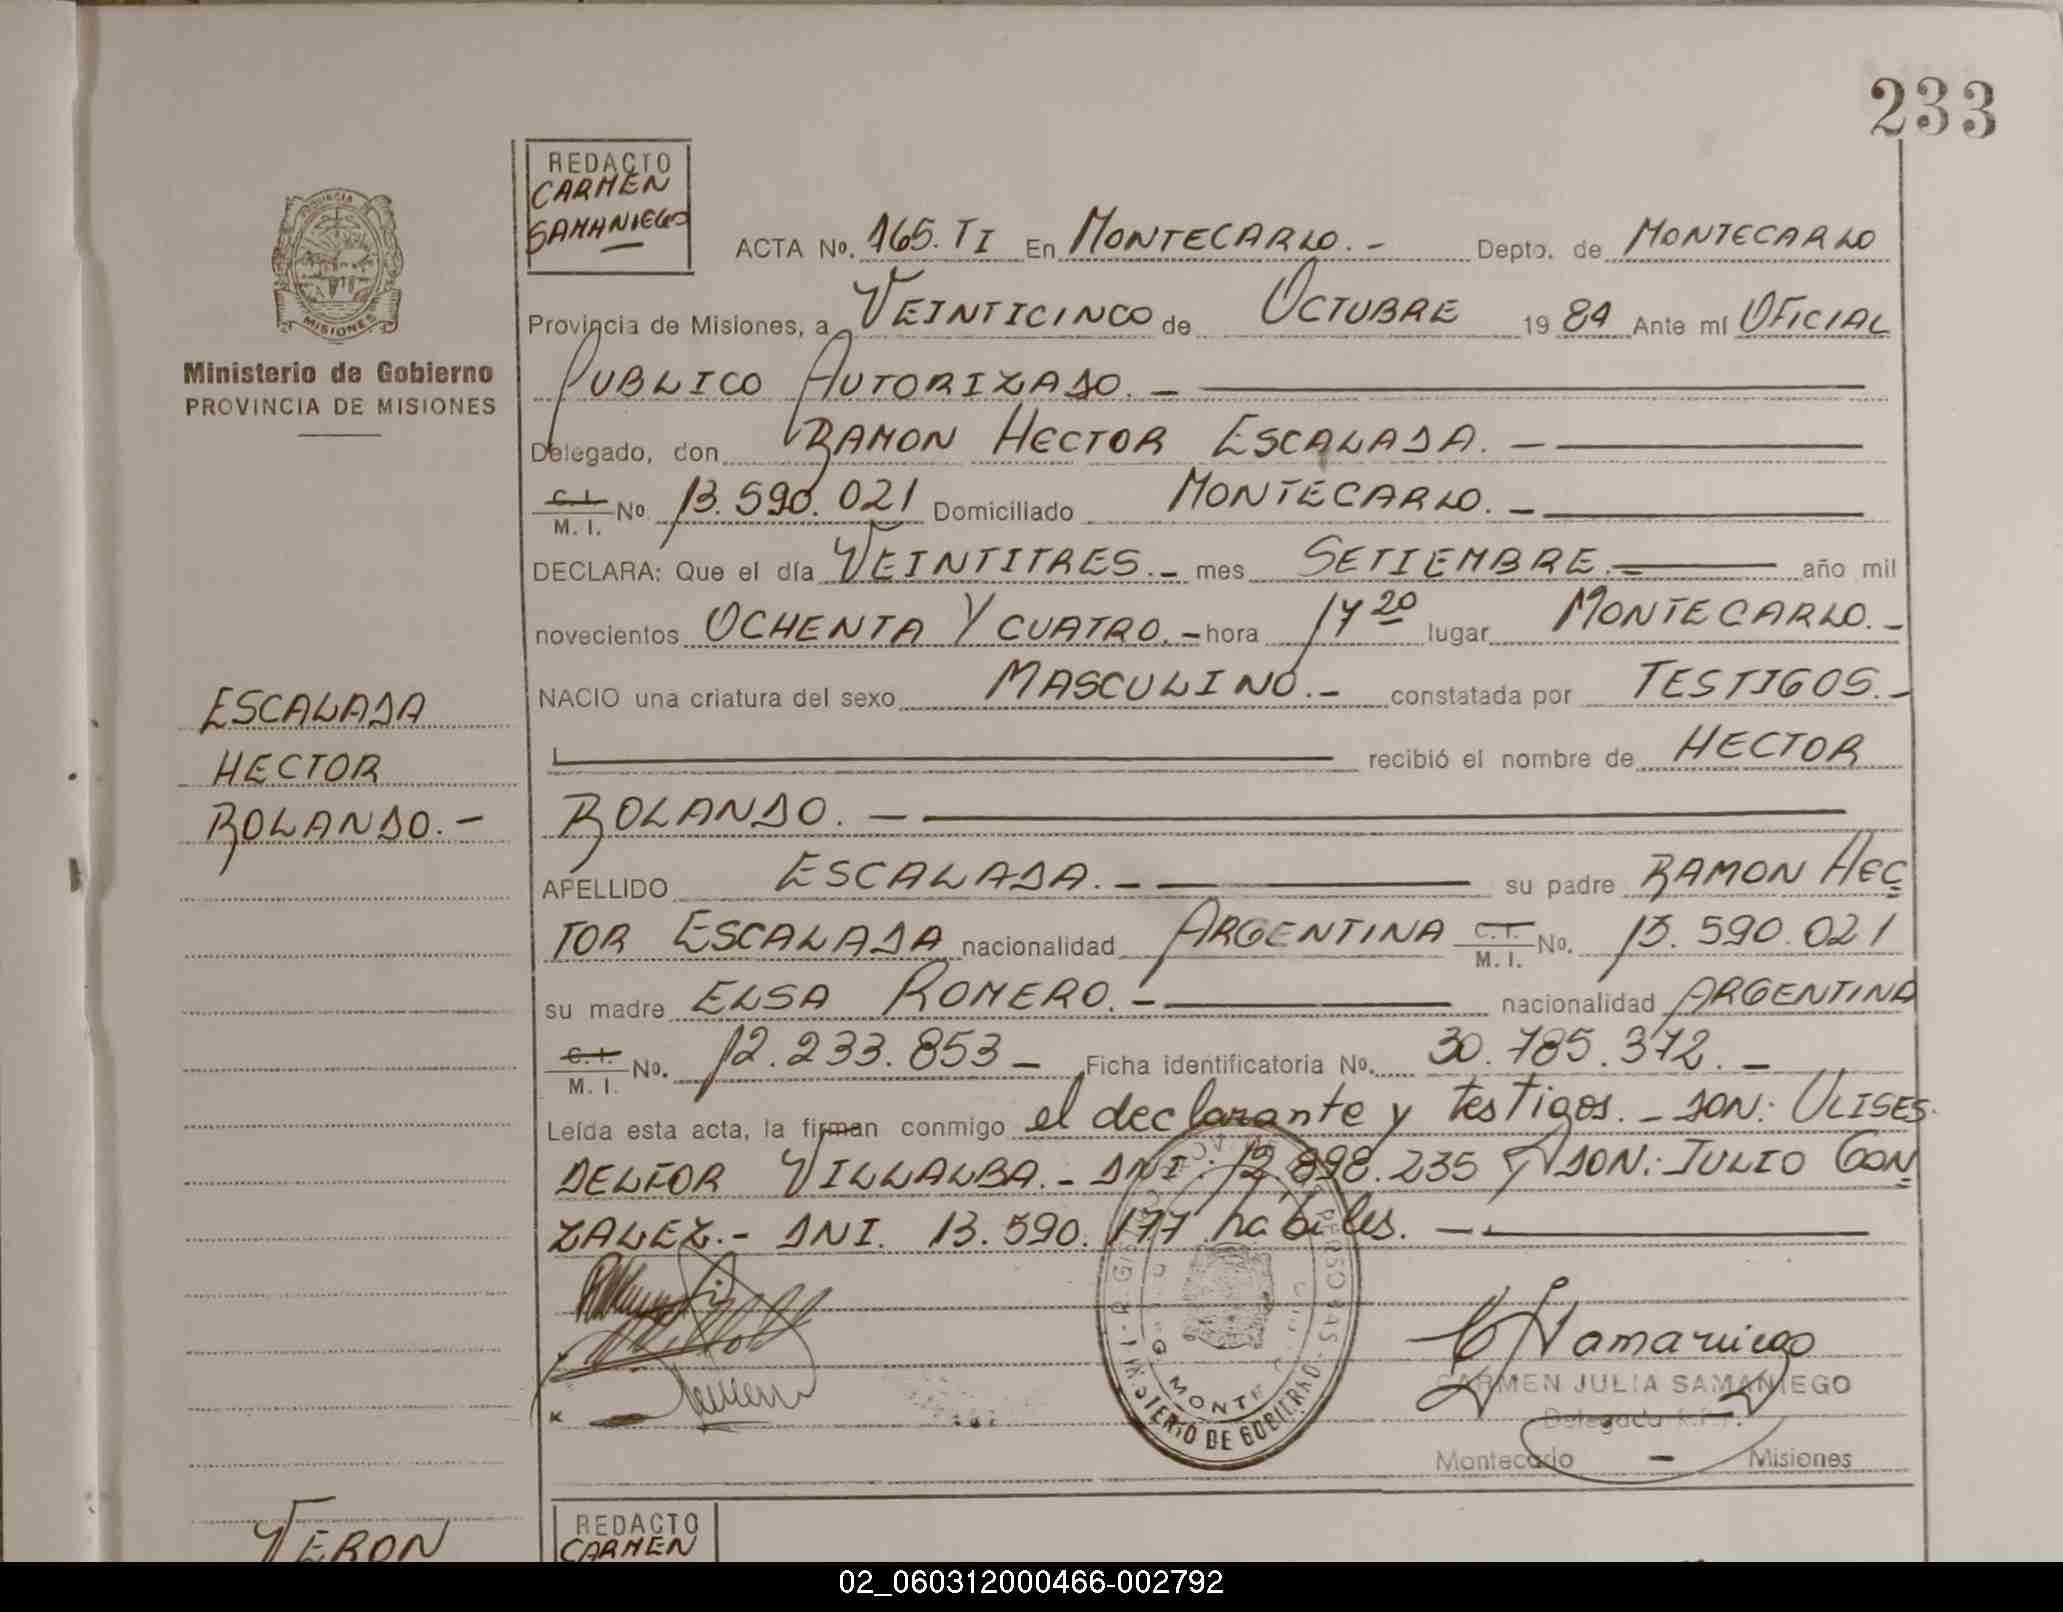 233
REDACTO
CARMEN
SAMANIEGO
PROVINCIA
MISIONES
ACTA No. 165. TI En MONTECARLO. - Depto. de MONTECARLO
Provincia de Misiones, a VEINTICINCO de OCTUBRE 19 84 Ante mí OFICIAL
Ministerio de Gobierno
PROVINCIA DE MISIONES
PUBLICO AUTORIZADO. -
Delegado, don RAMON HECTOR ESCALADA. -
C. I. M. I. No 13.590.021 Domiciliado MONTECARLO. -
DECLARA: Que el día VEINTITRES. - mes SETIEMBRE. - año mil
novecientos OCHENTA Y CUATRO. - hora 17 20 lugar MONTECARLO. -
NACIO una criatura del sexo MASCULINO. - constatada por TESTIGOS. -
recibió el nombre de HECTOR
ROLANDO. -
ESCALADA
HECTOR
ROLANDO. -
APELLIDO ESCALADA. - su padre RAMON HEC
TOR ESCALADA nacionalidad ARGENTINA C. I. M. I. No. 13.590.021
su madre ELSA ROMERO. - nacionalidad ARGENTINA
C. I. M. I. No. 12.233.853 - Ficha identificatoria No. 30.785.372. -
Leída esta acta, la firman conmigo el declarante y testigos. - DON: ULISES
DELFOR VILLALBA. - DNI: 12.898.235 Y DON: JULIO GON
ZALEZ. - DNI. 13.590.177 hábiles. -
MINISTERIO DE GOBIERNO
MONTE
C Samaniego
CARMEN JULIA SAMANIEGO
Delegada R.P.P.
Montecarlo - Misiones
VERON
REDACTO
CARMEN
02_060312000466-002792